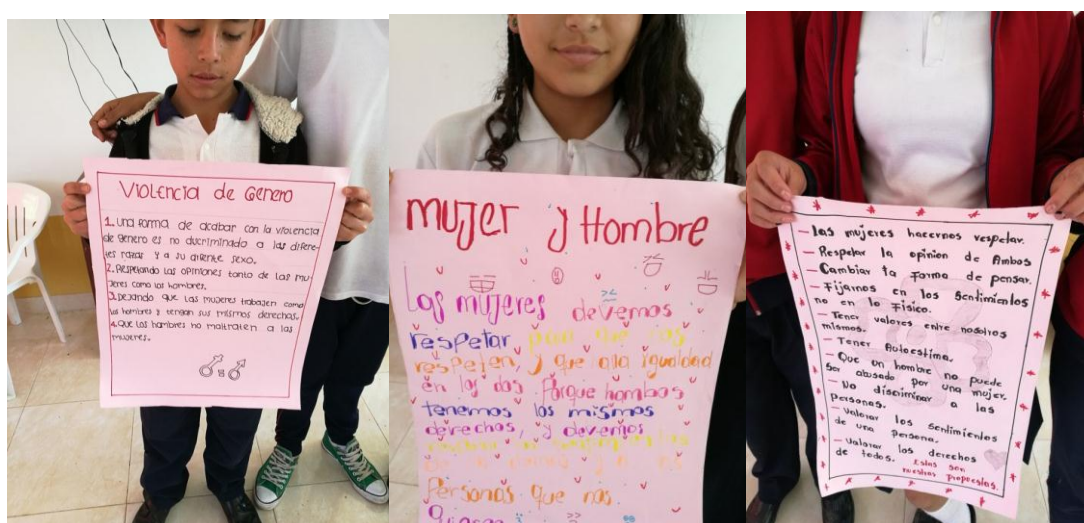 VIOLENCIA de GENERO
1. una forma de acabar con la violencia
de genero es no ducriminado a las diferen-
tes razas y a su diferente sexo.
2. Respetando las opiniones tanto de las mu-
jeres como los hombres.
3. Dejando que las mujeres trabajen como
los hombres y tengan sus mismos derechos.
4. Que los hombres no maltraten a las
mujeres.
mujer y Hombre
Las mujeres devemos
respetar para que nos
respeten, y que alla igualdad
en los dos Porque hombos
tenemos los mismos
derechos, y devemos
Personas que nos
- las mujeres hacernos respetar.
- Respetar la opinion de Ambos
- Cambiar la forma de pensar.
- Fijarnos en los sentimientos
no en lo Fisico.
- Tener valores entre nosotros
mismos.
- Tener Autoestima.
- Que un hombre no puede
ser abusado por una mujer.
- No discriminar a las
Personas.
- valorar los sentimientos
de una persona.
- valorar los derechos
de todos.
Estas son
nuestras propuestas.